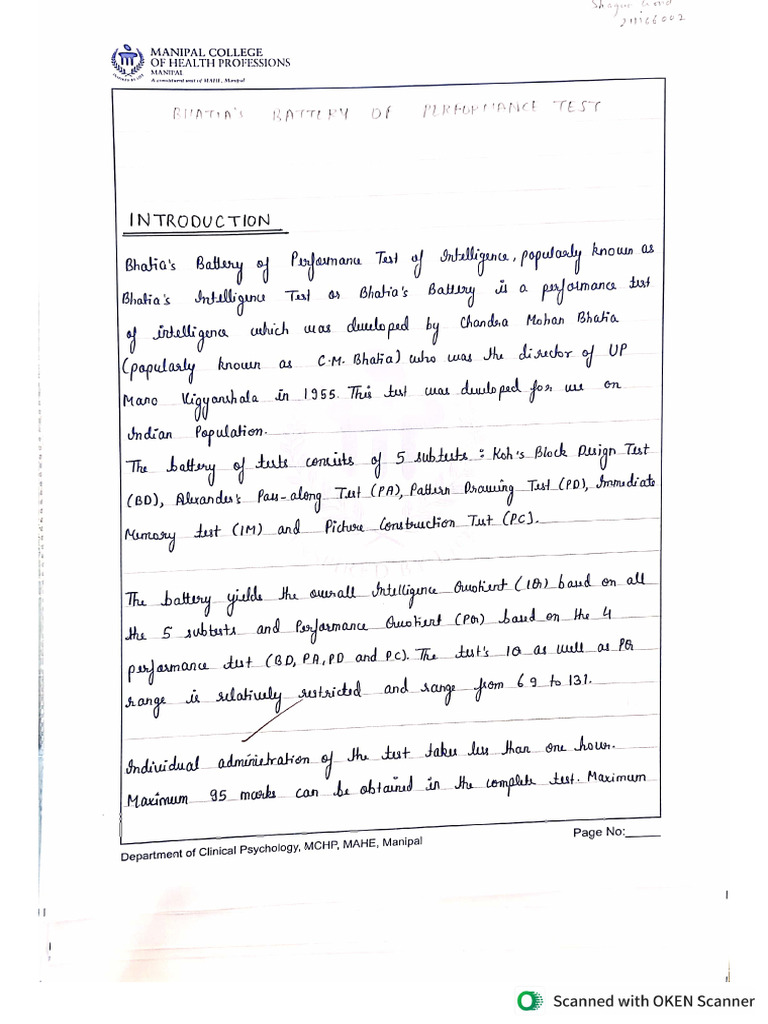 Shagun
MANIPAL COLLEGE
OF HEALTH PROFESSIONS
MANIPAL
A constituent unit of MAHE, Manipal
BHATIA'S BATTERY OF PERFORMANCE TEST
INTRODUCTION
Bhatia's Battery of Performance Test of Intelligence, popularly known as
Bhatia's Intelligence Test or Bhatia's Battery is a performance test
of intelligence which was developed by Chandra Mohan Bhatia
(popularly known as C.M. Bhatia) who was the director of UP
Mano Vigyanshala in 1955. This test was developed for use on
Indian Population.
The battery of tests consists of 5 subtests : Koh's Block Design Test
(BD), Alexander's Pass-along Test (PA), Pattern Drawing Test (PD), Immediate
Memory test (IM) and Picture Construction Test (PC).
The battery yields the overall Intelligence Quotient (IQ) based on all
the 5 subtests and Performance Quotient (PQ) based on the 4
performance test (BD, PA, PD and PC). The test's IQ as well as PQ
range is relatively restricted and range from 69 to 131.
Individual administration of the test takes less than one hour.
Maximum 95 marks can be obtained in the complete test. Maximum
Department of Clinical Psychology, MCHP, MAHE, Manipal
Page No:_____
Scanned with OKEN Scanner